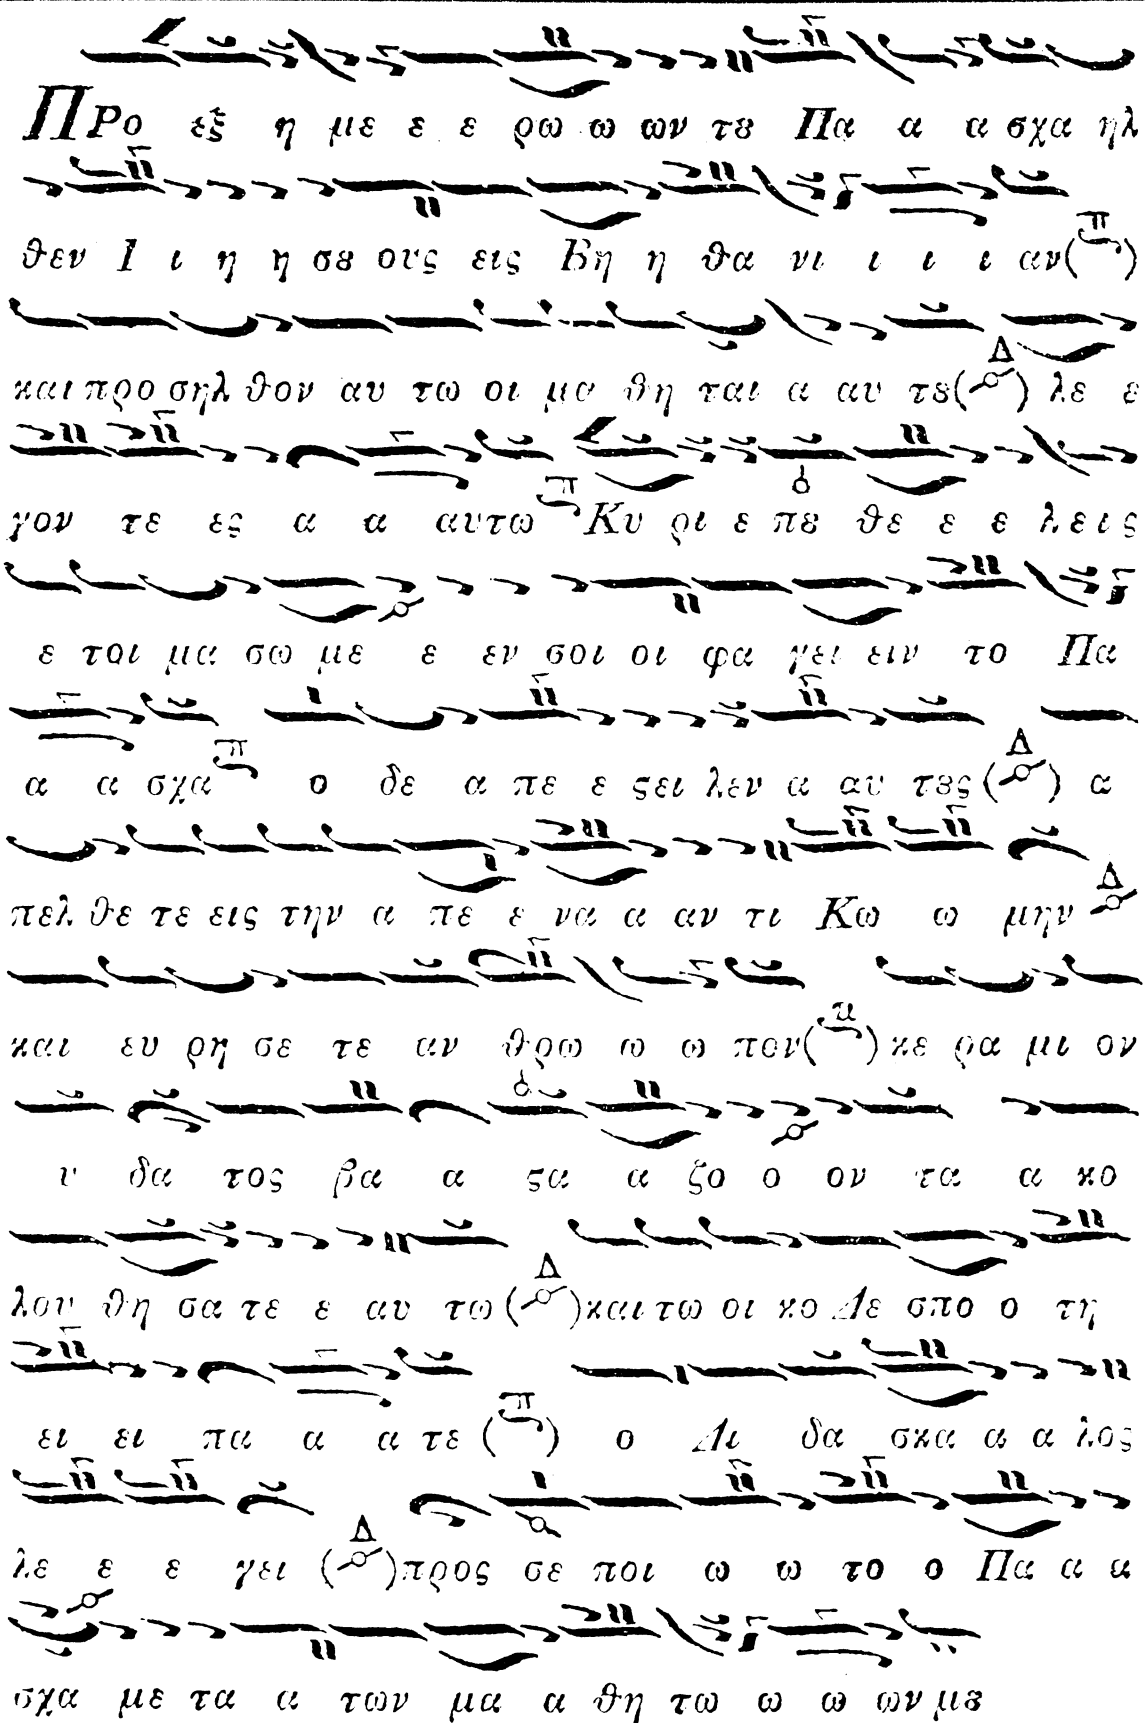 ΠΡο εξ η με ε ε ρω ω ων τȣ Πα α α σχα ηλ
θεν Ι ι η η σȣ ους εις Βη η θα νι ι ι ι αν (π)
και προ σηλ θον αυ τω οι μα θη ται α αυ τȣ (Δ) λε ε
γον τε ες α α αυτω π Κυ ρι ε πȣ θε ε ε λεις
ε τοι μα σω με ε εν σοι οι φα γει ειν το Πα
α α σχα π ο δε α πε ε ϛει λεν α αυ τȣς (Δ) α
πελ θε τε εις την α πε ε να α αν τι Κω ω μην Δ
και ευ ρη σε τε αν θρω ω ω πον (π) κε ρα μι ον
υ δα τος βα α ϛα α ζο ο ον τα α κο
λου θη σα τε ε αυ τω (Δ) και τω οι κο Δε σπο ο τη
ει ει πα α α τε (π) ο Δι δα σκα α α λος
λε ε ε γει (Δ) προς σε ποι ω ω το ο Πα α α
σχα με τα α των μα α θη τω ω ω ων μȣ